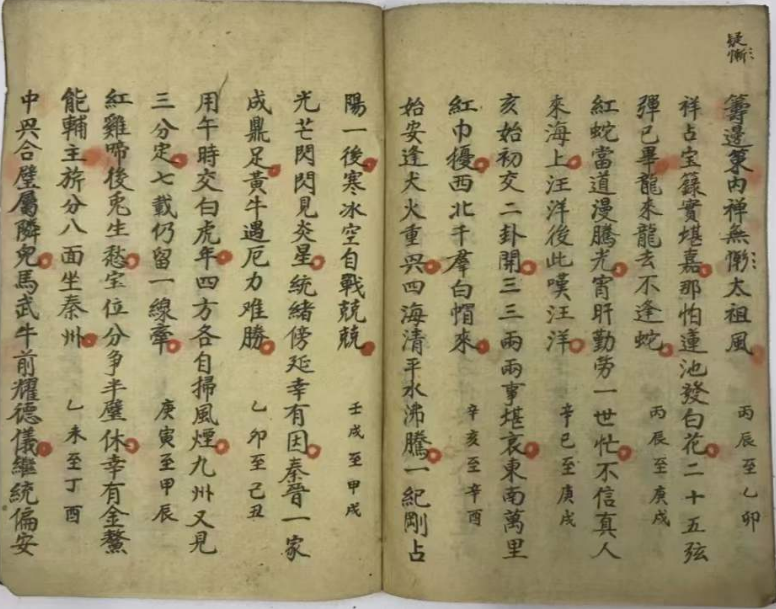 疑慚
籌邊策內禅無慚太祖風
丙辰至乙卯
祥占宝籙實堪嘉那怕蓮池發白花二十五弦
彈已畢龍來龍去不逢蛇
丙辰至庚戍
紅蛇當道漫騰光宵肝勤勞一世忙不信真人
來海上汪洋後此嘆汪洋
辛巳至庚戍
亥始初交二卦開三三兩兩事堪哀東南萬里
紅巾擾西北千羣白帽來
辛亥至辛酉
始安逢犬火重㒷四海清平水沸騰一紀剛占
陽一後寒冰空自戰兢兢
壬戍至甲戍
光芒閃閃見炎星統緒傍延幸有因秦晉一家
成鼎足黃牛遇厄力难勝
乙卯至己丑
用午時交白虎年四方各自掃風煙九州又見
三分定七載仍留一線牽
庚寅至甲辰
紅雞啼後兎生愁宝位分争半壁休幸有金鰲
能輔主旅分八面坐秦州
乙未至丁酉
中㒷合璧屬隣兒馬武牛前耀德儀繼統偏安